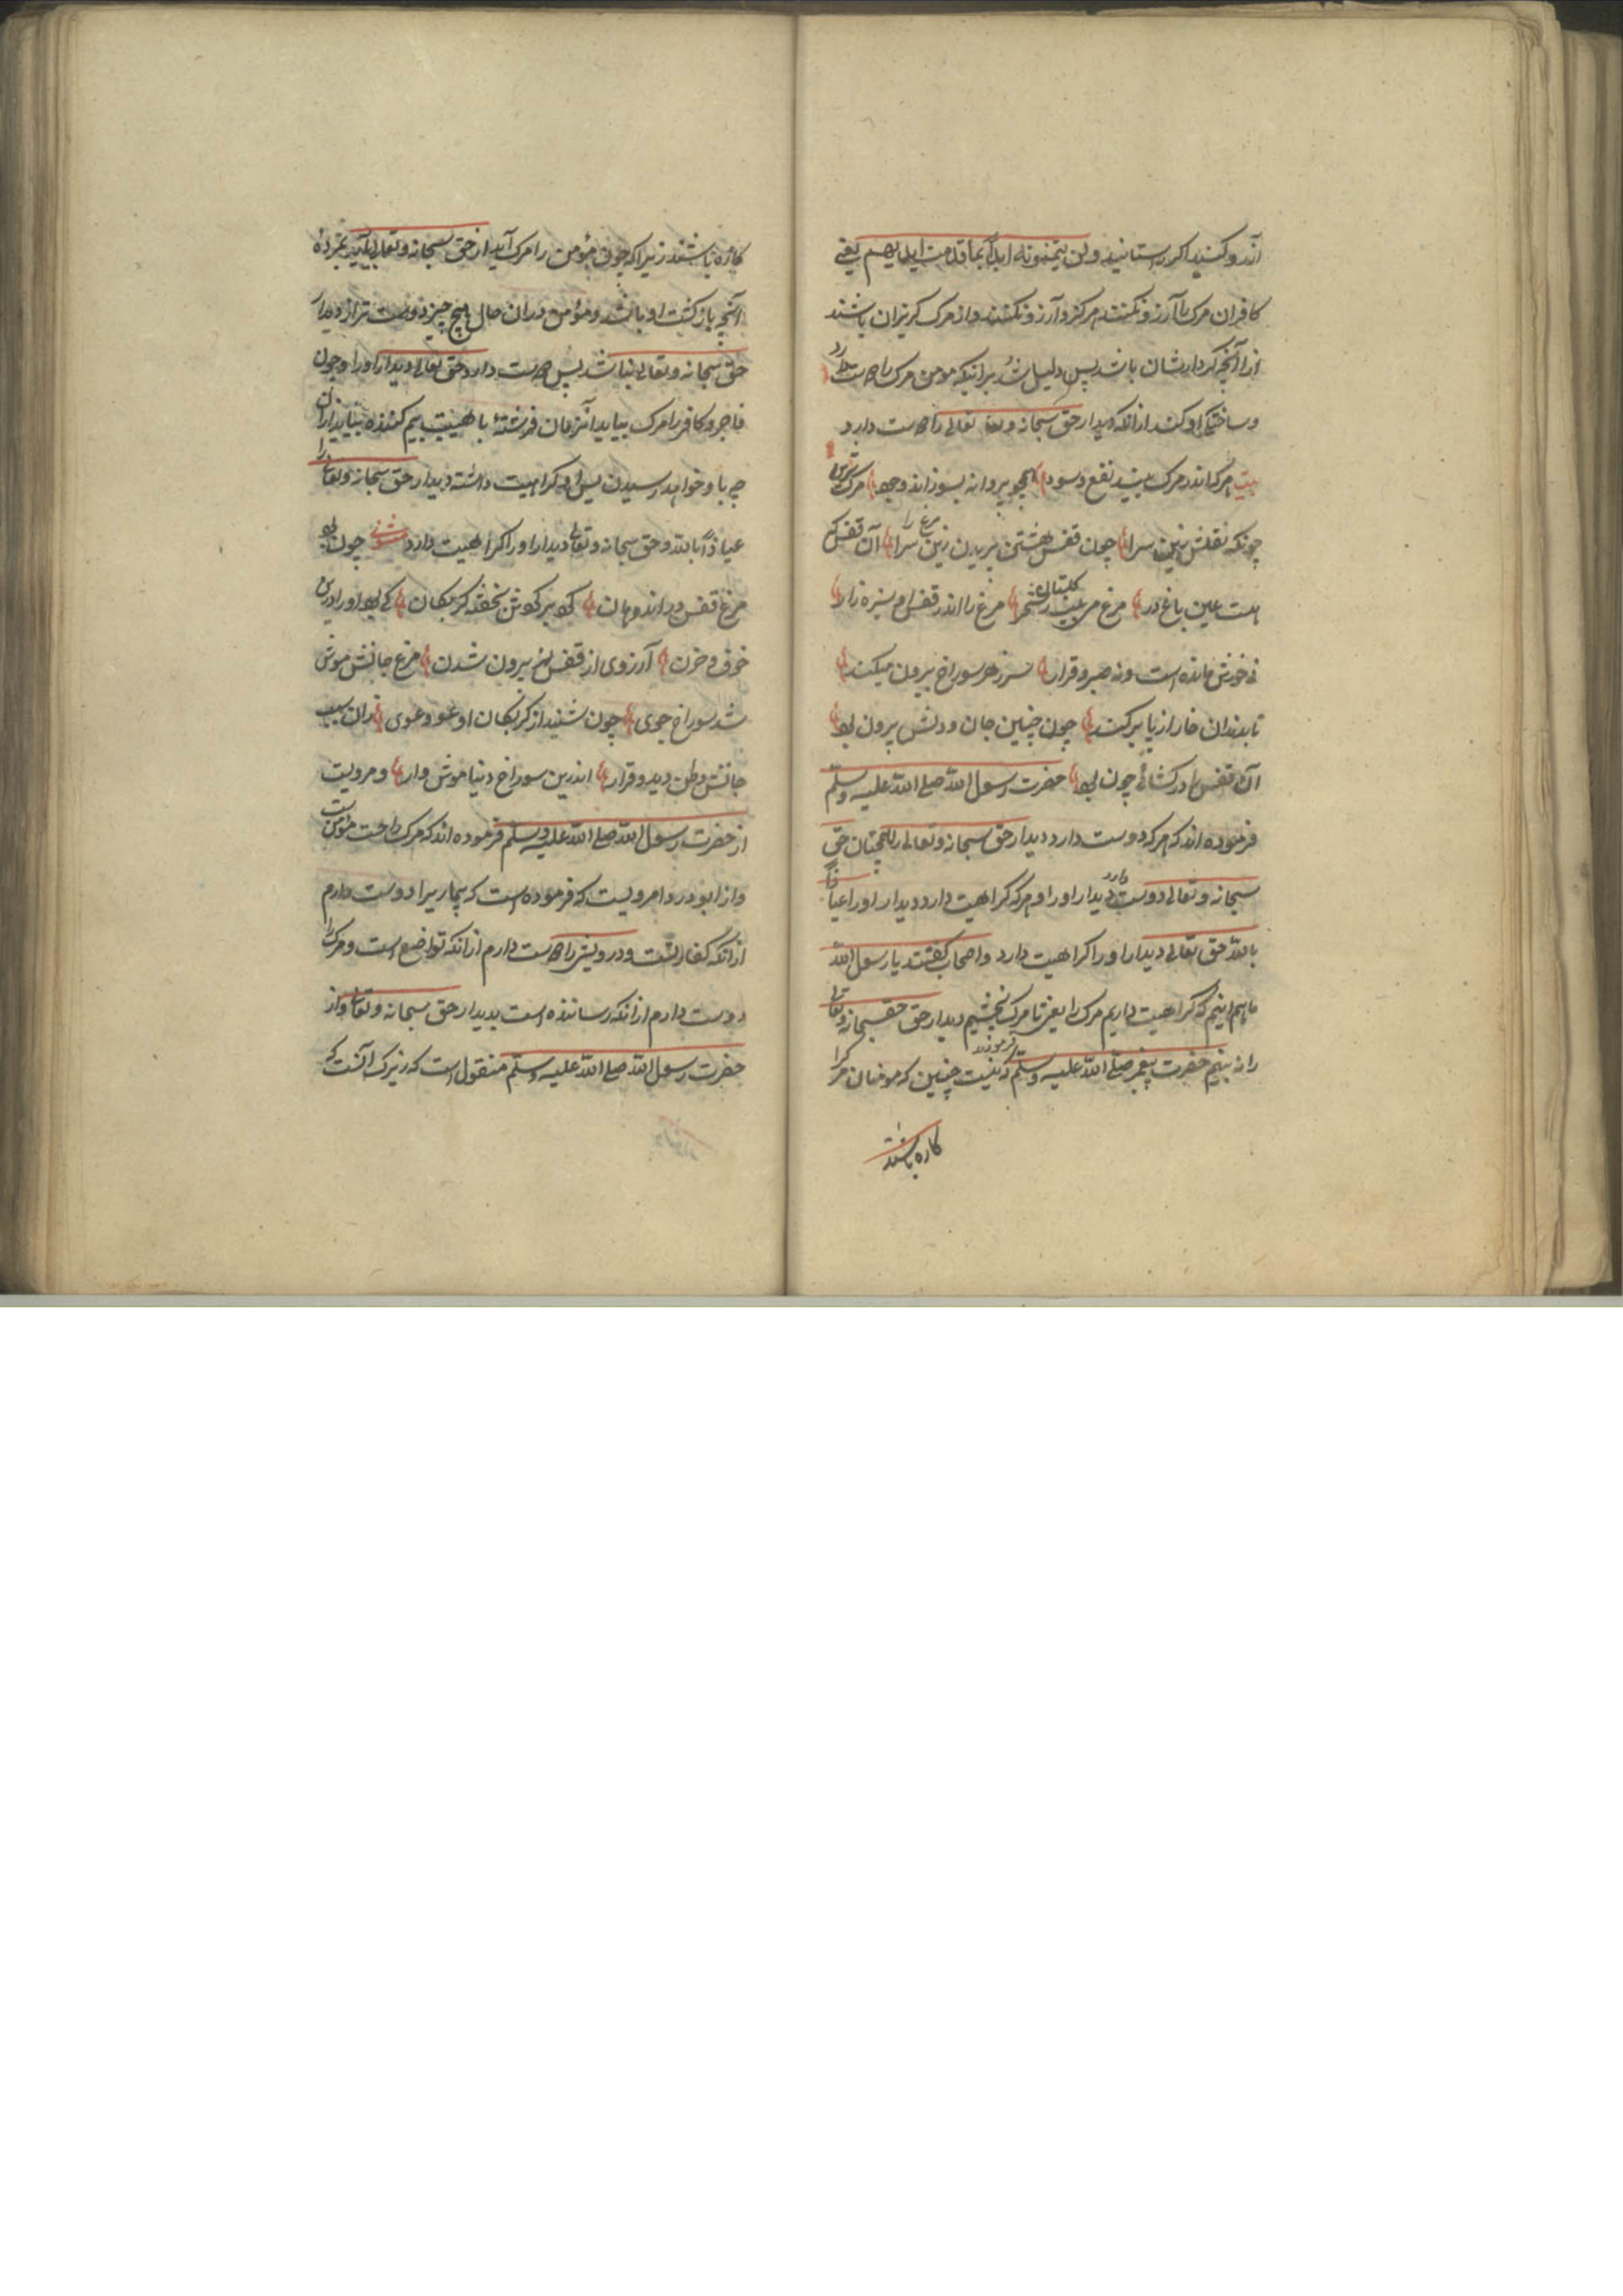 آرزو کنید اگر راستانید ولن یتمنونه ابداً بما قدمت ایدیهم یعنی
کافران مرگ را آرزو نکنند هرگز و آرزو نکنند و از مرگ گریزان باشند
از آنچه کردارشان باشد پس دلیل شد برانیکه مومن مرگ را دوست دارد
و ساختگی او کند از آنکه دیدار حق سبحانه وتعالی را دوست دارد
بیت هرکه اندر مرگ بیند نفع وسود همچو پروانه بسوزاند وجود مرگ
چونکه نقلش زین سرا چون قفس هشتن پریدن مرغ را زین سرا آن قفس که
هست عین باغ در مرغ می بیند گلستان و شجر مرغ را اندر قفس و سبزه زار
نی خورش مانده است ونه صبر و قرار سر ز هر سوراخ بیرون میکند
تا بدندان خار از پا برکند چون چنین جان و دلش بیرون بود
آن قفس را درکشائی چون بود حضرت رسول الله صلی الله علیه وسلم
فرموده اند که هرکه دوست دارد دیدار حق سبحانه وتعالی را همچنان حق
سبحانه وتعالی دوست دارد دیدار او را و هرکه کراهیت دارد دیدار او را عیاذاً
بالله حق تعالی دیدار او را کراهیت دارد واصحاب گفتند یا رسول الله
ما همه اینیم که کراهیت داریم مرگ را یعنی تا مرگ نچشیم دیدار حق سبحانه وتعالی
را نه بینیم حضرت پیغمبر صلی الله علیه وسلم فرمودند که نیست چنین که مومنان مرگ را
کاره باشند
کاره باشند زیرا که چون مؤمن را مرگ آید از حق سبحانه وتعالی آید بمژده
آنچه بازگشت او باشد و مؤمن دران حال هیچ چیز دوست تر از دیدار
حق سبحانه وتعالی نباشد پس دوست دارد حق تعالی دیدار او را و چون
فاجر و کافر را مرگ بیاید آنزمان فرشتهٔ با هیبت بیم کننده بیاید از آن
چه باو خواهد رسیدن پس او کراهیت داشته دیدار حق سبحانه وتعالی را
عیاذاً بالله و حق سبحانه وتعالی دیدار او را کراهیت دارد مثنوی چون بود
مرغ قفس در اندوهان گرد بر گردش بحلقه گربگان کی بود او را درین
خوف و حزن آرزوی از قفس بیرون شدن مرغ جانش موش
شد سوراخ جوی چون شنید از گربگان او عو و عوی زان سبب
جانش وطن دید و قرار اندرین سوراخ دنیا موش وار و مرویست
از حضرت رسول الله صلی الله علیه وسلم فرموده اند که مرگ راحت مؤمن ست
و از ابو دردا مرویست که فرموده است که بیماریرا دوست دارم
از آنکه کفارتست و درویشی را دوست دارم از آنکه تواضع است و مرگ را
دوست دارم از آنکه رساننده است بدیدار حق سبحانه وتعالی و از
حضرت رسول الله صلی الله علیه وسلم منقول است که زیرک آنست که